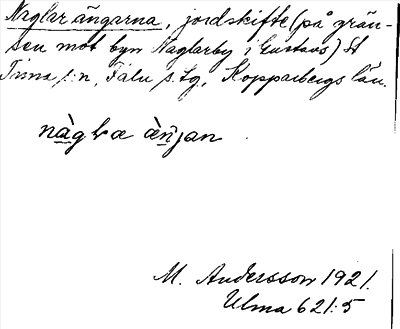 Naglarängarna, jordskifte (på grän-
sen mot byn Naglarby i Gustavs) St
Tuna s:n, Falu s.lg, Kopparbergs län.
nàglæ æ̀njan
M. Andersson 1921.
Ulma 621:5